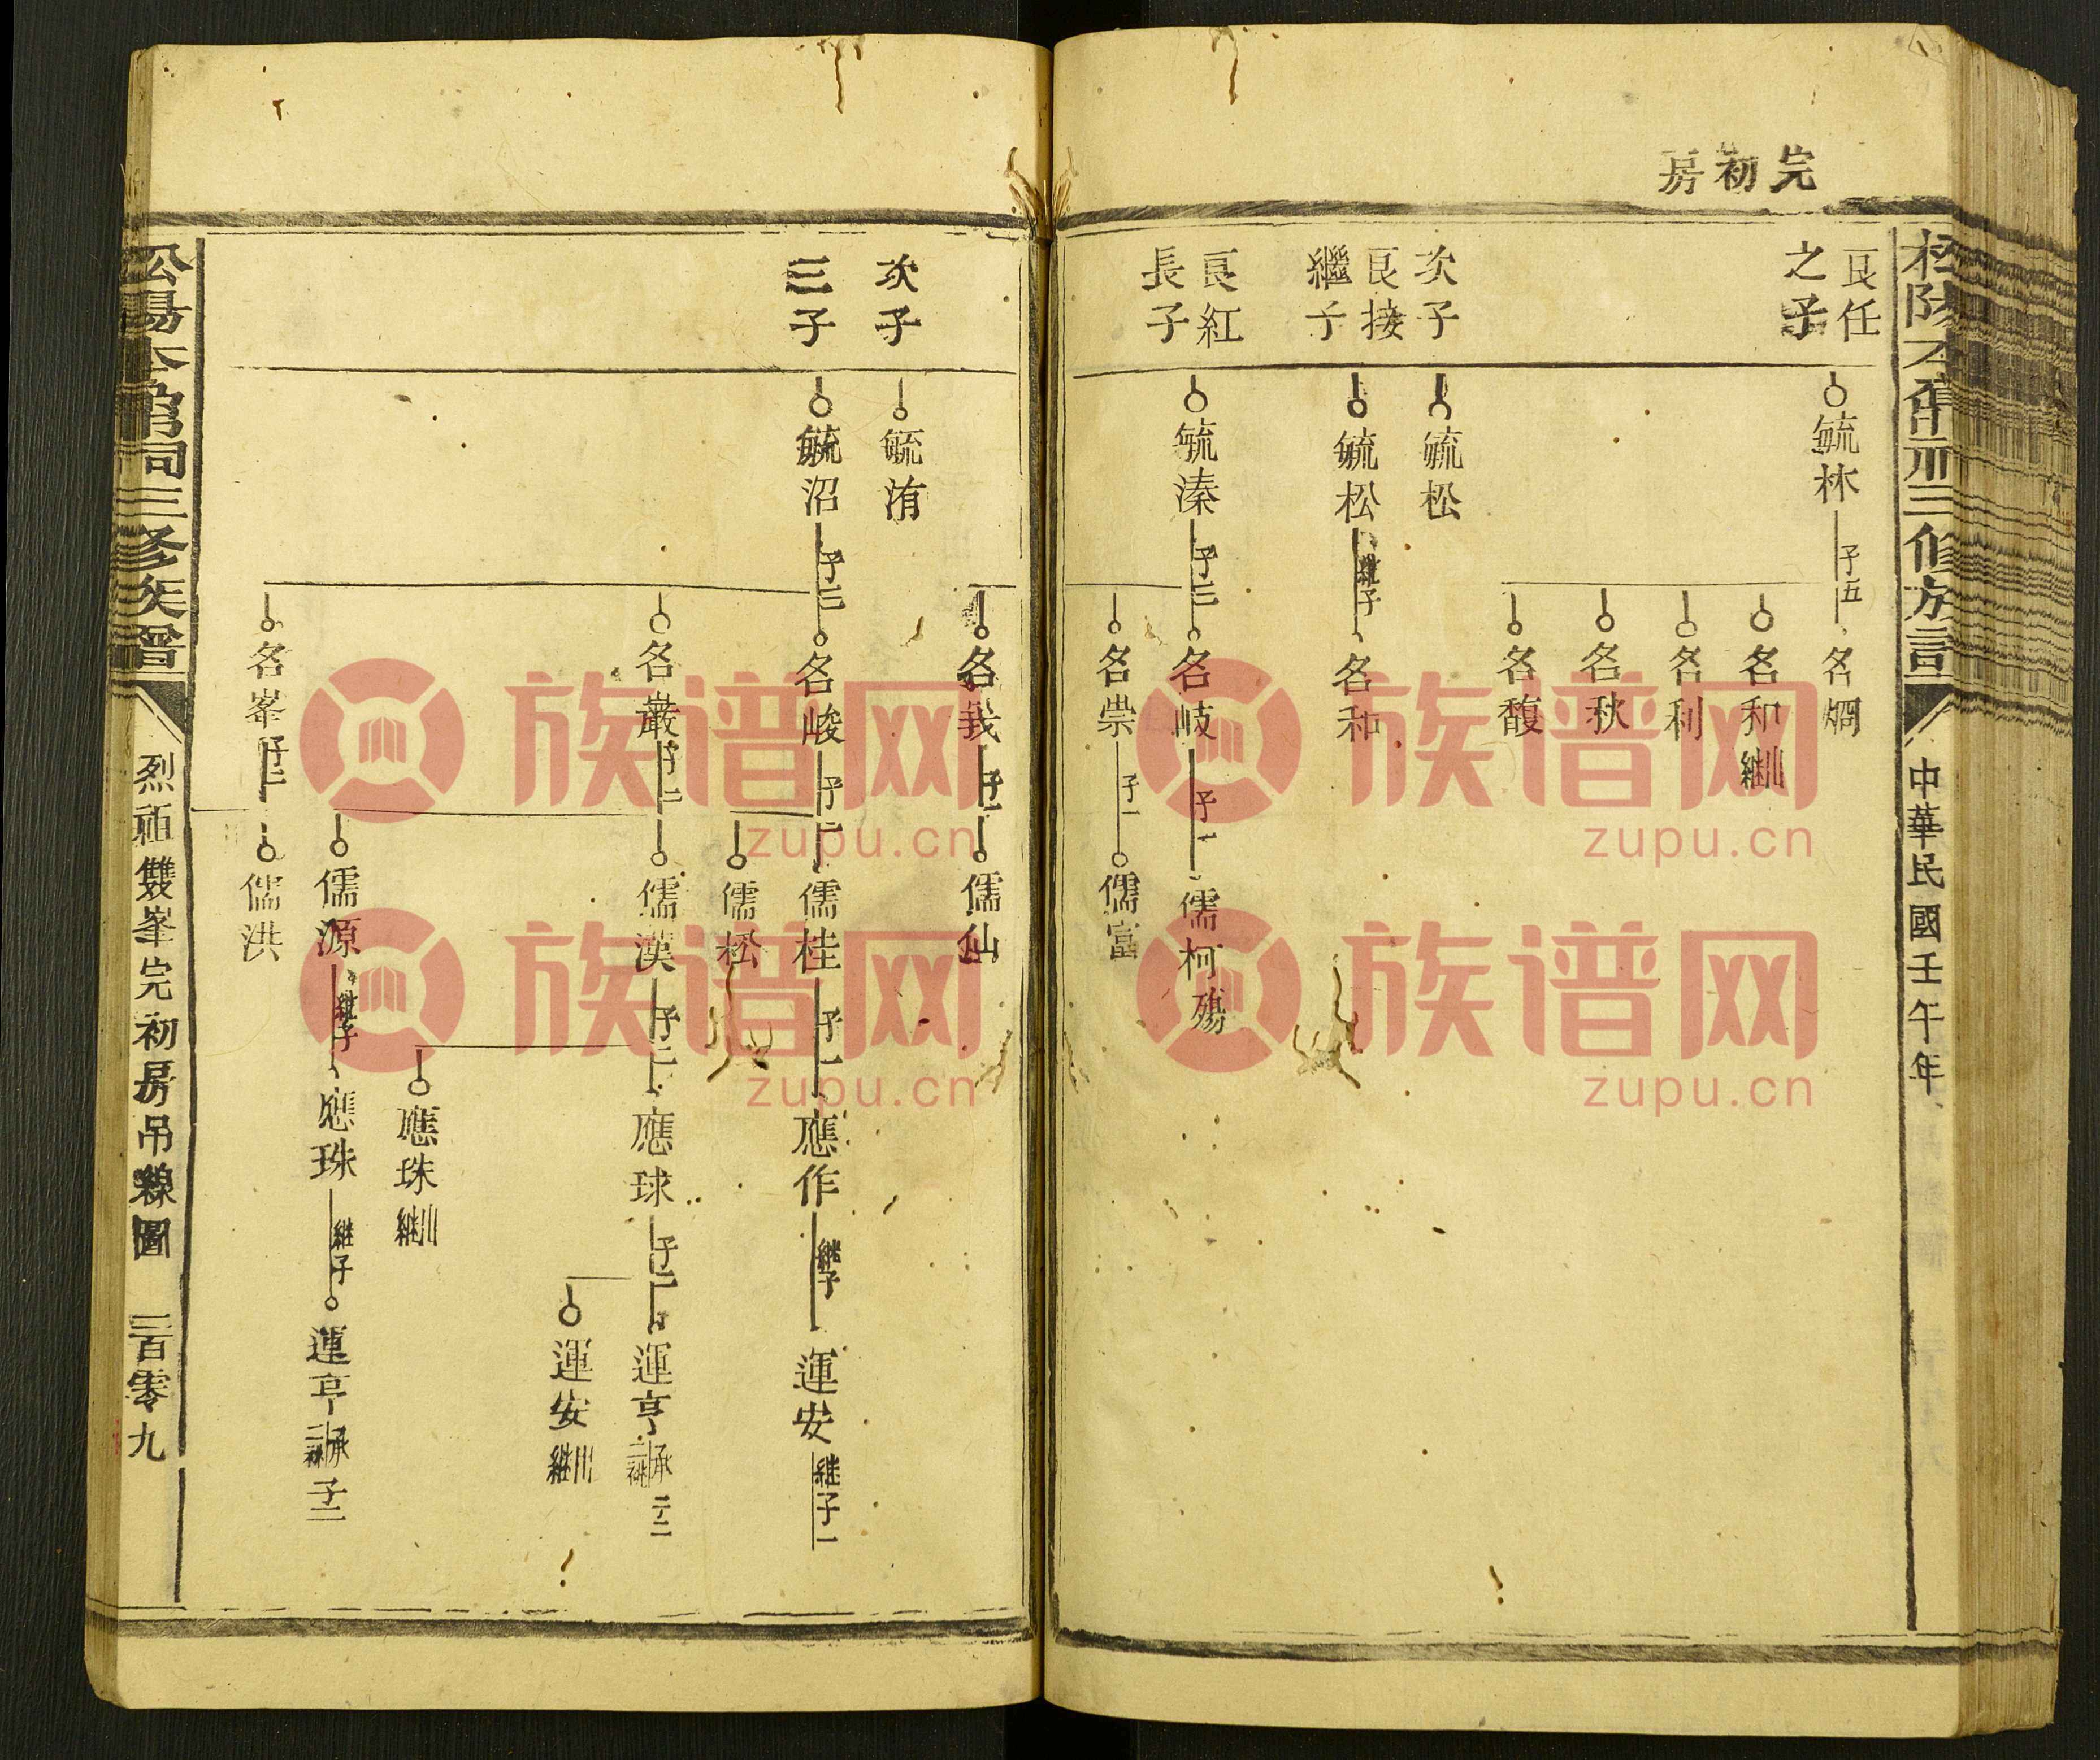 完初房
中華民國壬午年
良任
之子
毓林
子五
名烱
名和
出繼
名利
名秋
名馥
次子
毓松
良接
繼子
毓松
継子
名和
良紅
長子
毓溱
子三
名岐
子一
儒柯殤
名崇
子一
儒富
名我
子一
儒仙
次子
毓洧
三子
毓沼
子三
名峻
子二
儒桂
子一
應作
継子
運安
継子一
儒松
名巖
子二
儒漢
子二
應球
子二
運亨
承二祧
子二
運安
出継
應珠
出継
儒源
継子
應珠
継子
運亨
承二祧
子二
名峯
子二
儒洪
三修族譜
烈祖雙峯完初房吊線圖
三百零九
族谱网
zupu.cn
族谱网
zupu.cn
族谱网
zupu.cn
族谱网
zupu.cn